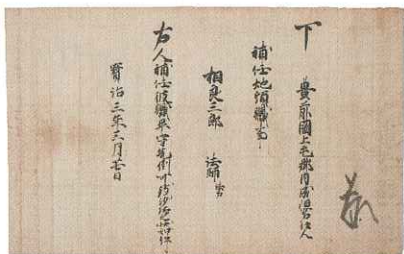 下
豊前國上毛郡内成恒名住人
補任地頭職事
相良三郎 法師 

右人補任彼職早守先例可致沙汰之状如件
寶治三年三月廿日